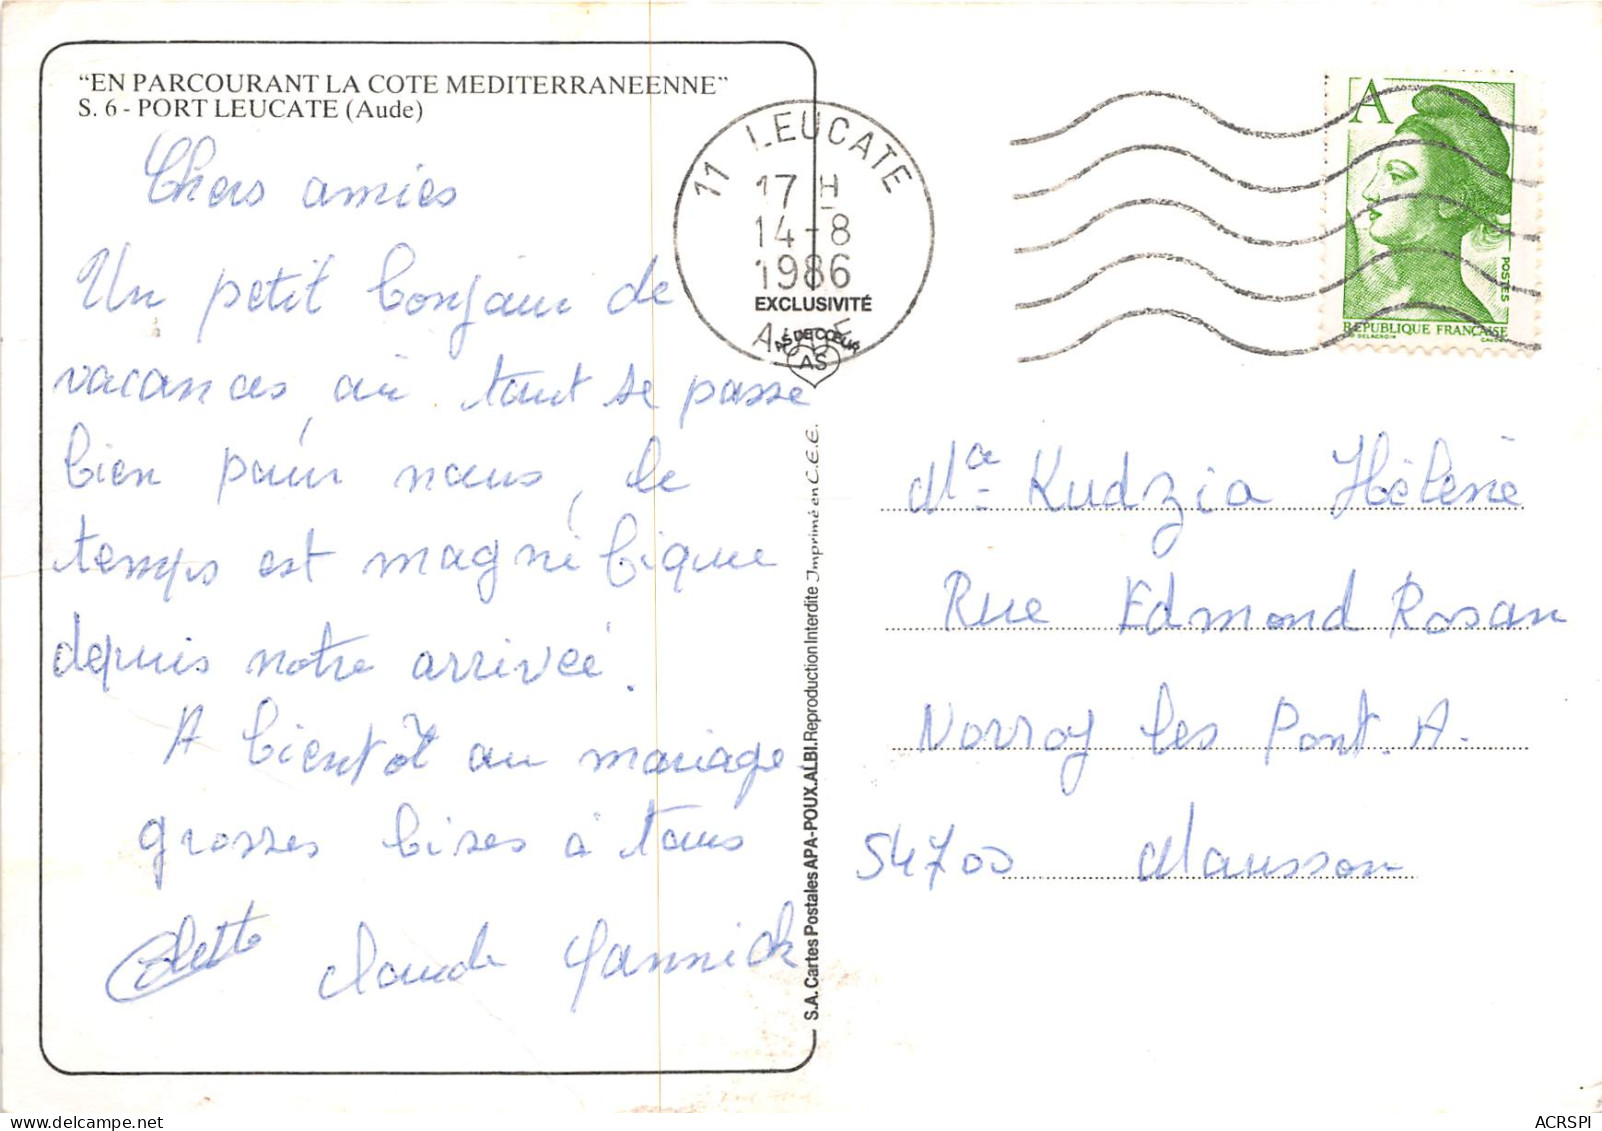 "EN PARCOURANT LA COTE MEDITERRANEENNE"
S. 6 - PORT LEUCATE (Aude)
Chers amies
Un petit bonjour de
vacances, où tout se passe
bien pour nous, le
temps est magnifique
depuis notre arrivée.
A bientôt au mariage
grosses bises à tous
Colette Claude Yannick
11 LEUCATE
17 H
14-8
1986
EXCLUSIVITÉ
AS DE CŒUR
AS
S.A. Cartes Postales APA-POUX. ALBI. Reproduction Interdite Imprimé en C.E.E.
A
POSTES
REPUBLIQUE FRANÇAISE
DELACROIX
Me Kudzia Hélène
Rue Edmond Rosan
Norroy les Pont. A.
54700 Mousson
ACRSPI